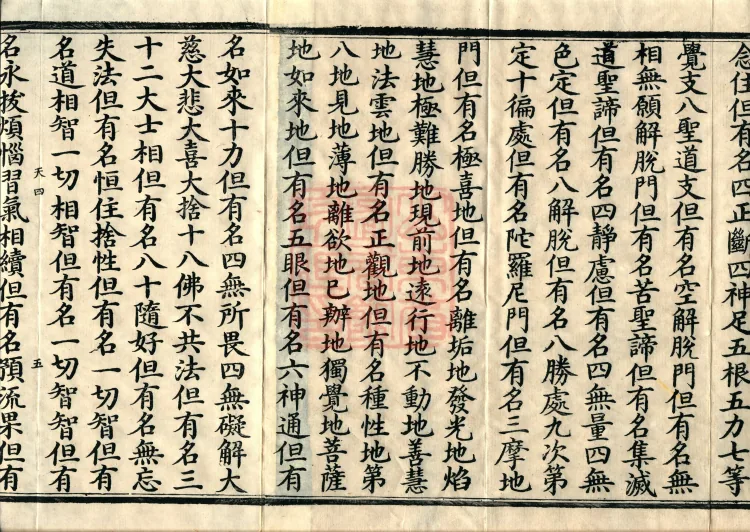 念住但有名四正斷四神足五根五力七等
覺支八聖道支但有名空解脫門但有名無
相無願解脫門但有名苦聖諦但有名集滅
道聖諦但有名四靜慮但有名四無量四無
色定但有名八解脫但有名八勝處九次第
定十徧處但有名陀羅尼門但有名三摩地
門但有名極喜地但有名離垢地發光地焰
慧地極難勝地現前地遠行地不動地善慧
地法雲地但有名正觀地但有名種性地第
八地見地薄地離欲地已辦地獨覺地菩薩
地如來地但有名五眼但有名六神通但有
名如來十力但有名四無所畏四無礙解大
慈大悲大喜大捨十八佛不共法但有名三
十二大士相但有名八十隨好但有名無忘
失法但有名恒住捨性但有名一切智但有
名道相智一切相智但有名一切智智但有
天四
五
名永拔煩惱習氣相續但有名預流果但有